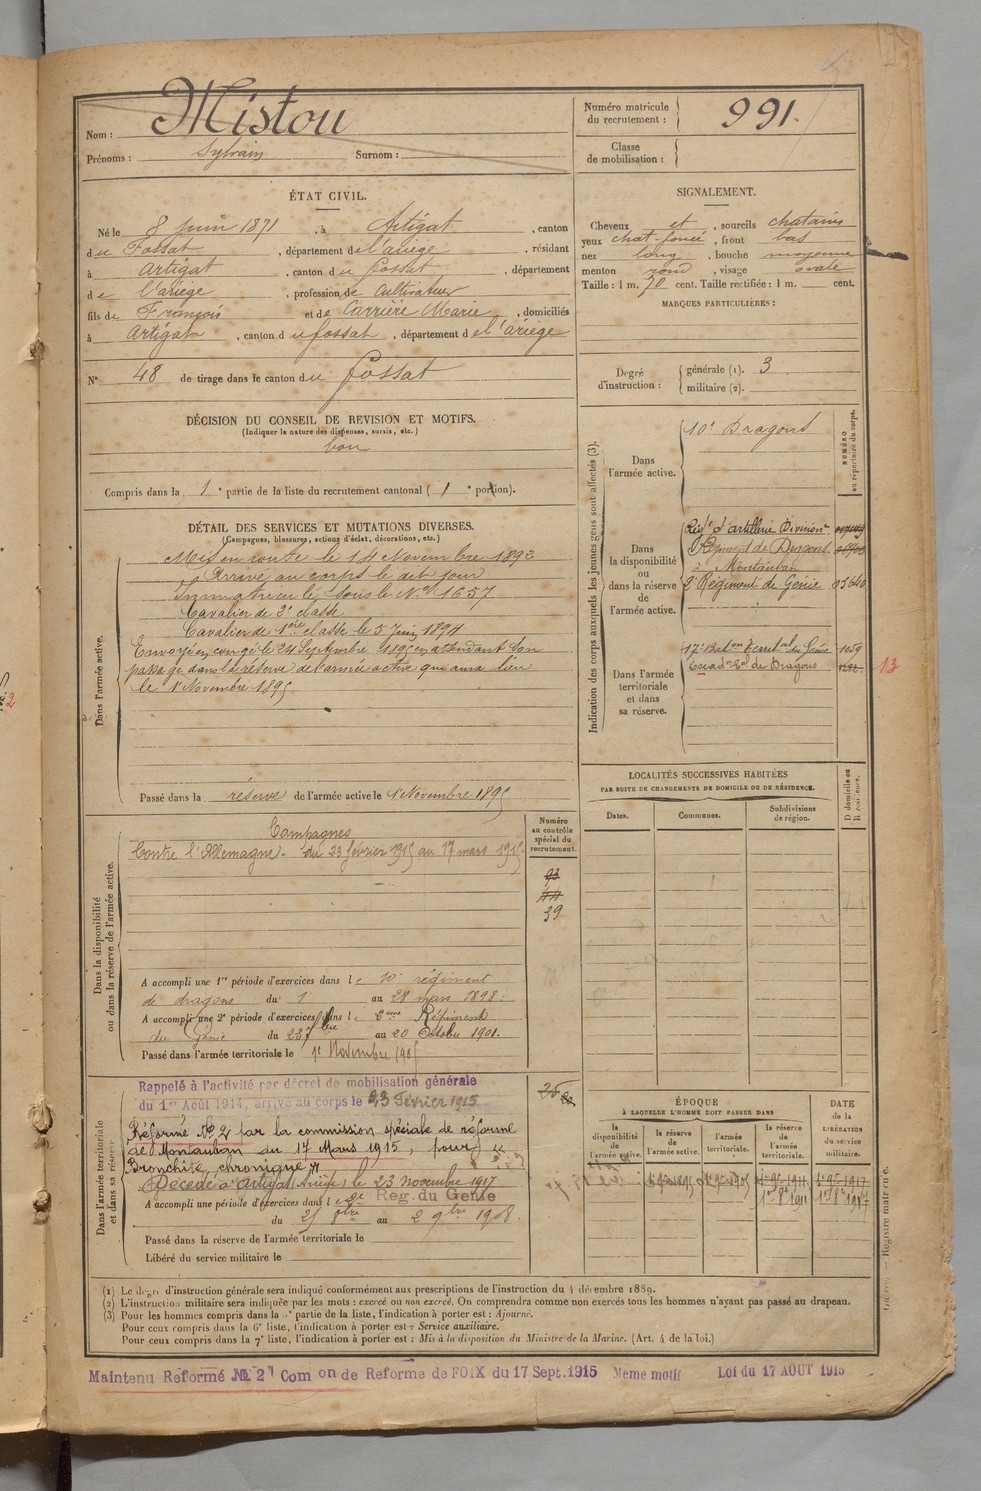 Nom : Mistou
Prénoms : Sylvain Surnom :
Numéro matricule du recrutement : 991.
Classe de mobilisation :
ÉTAT CIVIL.
Né le 8 juin 1871, à Artigat, canton
du Fossat, département de l'ariège, résidant
à Artigat, canton du fossat, département
de l'ariège, profession de Cultivateur
fils de François et de Carrière Marie, domiciliés
à Artigat, canton du fossat, département de l'ariège
N° 48 de tirage dans le canton du fossat
SIGNALEMENT.
Cheveux et, sourcils chatains
yeux chat-foncé, front bas
nez long, bouche moyenne
menton rond, visage ovale
Taille : 1 m. 70 cent. Taille rectifiée : 1 m. cent.
MARQUES PARTICULIÈRES :
Degré d'instruction : générale (1). 3
militaire (2).
DÉCISION DU CONSEIL DE REVISION ET MOTIFS.
(Indiquer la nature des dispenses, sursis, etc.)
bon
Compris dans la 1e partie de la liste du recrutement cantonal (1e portion).
DÉTAIL DES SERVICES ET MUTATIONS DIVERSES.
(Campagnes, blessures, actions d'éclat, décorations, etc.)
Dans l'armée active.
Mis en route le 14 Novembre 1892
Arrivé au corps le dit jour
Immatriculé sous le No 1657
Cavalier de 2e classe
Cavalier de 1ère classe le 5 Juin 1894
Envoyé en congé le 24 Septembre 1895 en attendant son
passage dans la réserve de l'armée active qui aura lieu
le 1er Novembre 1895
Passé dans la réserve de l'armée active le 1er Novembre 1895
Indication des corps auxquels les jeunes gens sont affectés (3).
NUMÉRO au répertoire du corps.
Dans l'armée active.
10e Dragons
Dans la disponibilité ou dans la réserve de l'armée active.
Régt d'artillerie Divisionre
Régiment de Dragons
à Montauban
2e Régiment de Génie 03640
Dans l'armée territoriale et dans sa réserve.
17e Baton Territal du Génie 1059
Escadn Tal de Dragons 13
LOCALITÉS SUCCESSIVES HABITÉES
PAR SUITE DE CHANGEMENTS DE DOMICILE OU DE RÉSIDENCE.
Dates.
Communes.
Subdivisions de région.
D domicile ou R résidence.
Dans la disponibilité ou dans la réserve de l'armée active.
Numéro au contrôle spécial du recrutement.
Campagnes
Contre l'Allemagne - du 23 février 1915 au 17 mars 1915
93
44
39
A accompli une 1re période d'exercices dans le 10e régiment
de dragons du 1 au 28 mars 1898.
A accompli une 2e période d'exercices dans le 2ème Régiment
du Génie du 23 7bre au 20 Octobre 1901.
Passé dans l'armée territoriale le 1er Novembre 1905
Dans l'armée territoriale et dans sa réserve
Rappelé à l'activité par décret de mobilisation générale
du 1er Août 1914, arrivé au corps le 23 Février 1915
Réformé No 2 par la commission spéciale de réforme
de Montauban du 17 Mars 1915, pour «
Bronchite chronique »
Décédé à Artigat (Ariège) le 23 Novembre 1917
A accompli une période d'exercices dans le 2e Reg. du Genie
du 25 8bre au 2 9bre 1908.
Passé dans la réserve de l'armée territoriale le
Libéré du service militaire le
ÉPOQUE
À LAQUELLE L'HOMME DOIT PASSER DANS
la disponibilité de l'armée active.
la réserve de l'armée active.
l'armée territoriale.
la réserve de l'armée territoriale.
DATE de la LIBÉRATION du service militaire.
1er 9bre 1895
1er 9bre 1905
1er 9bre 1911
1er 9bre 1917
1er 8bre 1911
1er 8bre 1917
(1) Le degré d'instruction générale sera indiqué conformément aux prescriptions de l'instruction du 4 décembre 1889.
(2) L'instruction militaire sera indiquée par les mots : exercé ou non exercé. On comprendra comme non exercés tous les hommes n'ayant pas passé au drapeau.
(3) Pour les hommes compris dans la 2e partie de la liste, l'indication à porter est : Ajourné.
Pour ceux compris dans la 6e liste, l'indication à porter est : Service auxiliaire.
Pour ceux compris dans la 7e liste, l'indication à porter est : Mis à la disposition du Ministre de la Marine. (Art. 4 de la loi.)
Maintenu Reformé No 2 Com on de Reforme de FOIX du 17 Sept. 1915 Meme motif Loi du 17 AOUT 1915